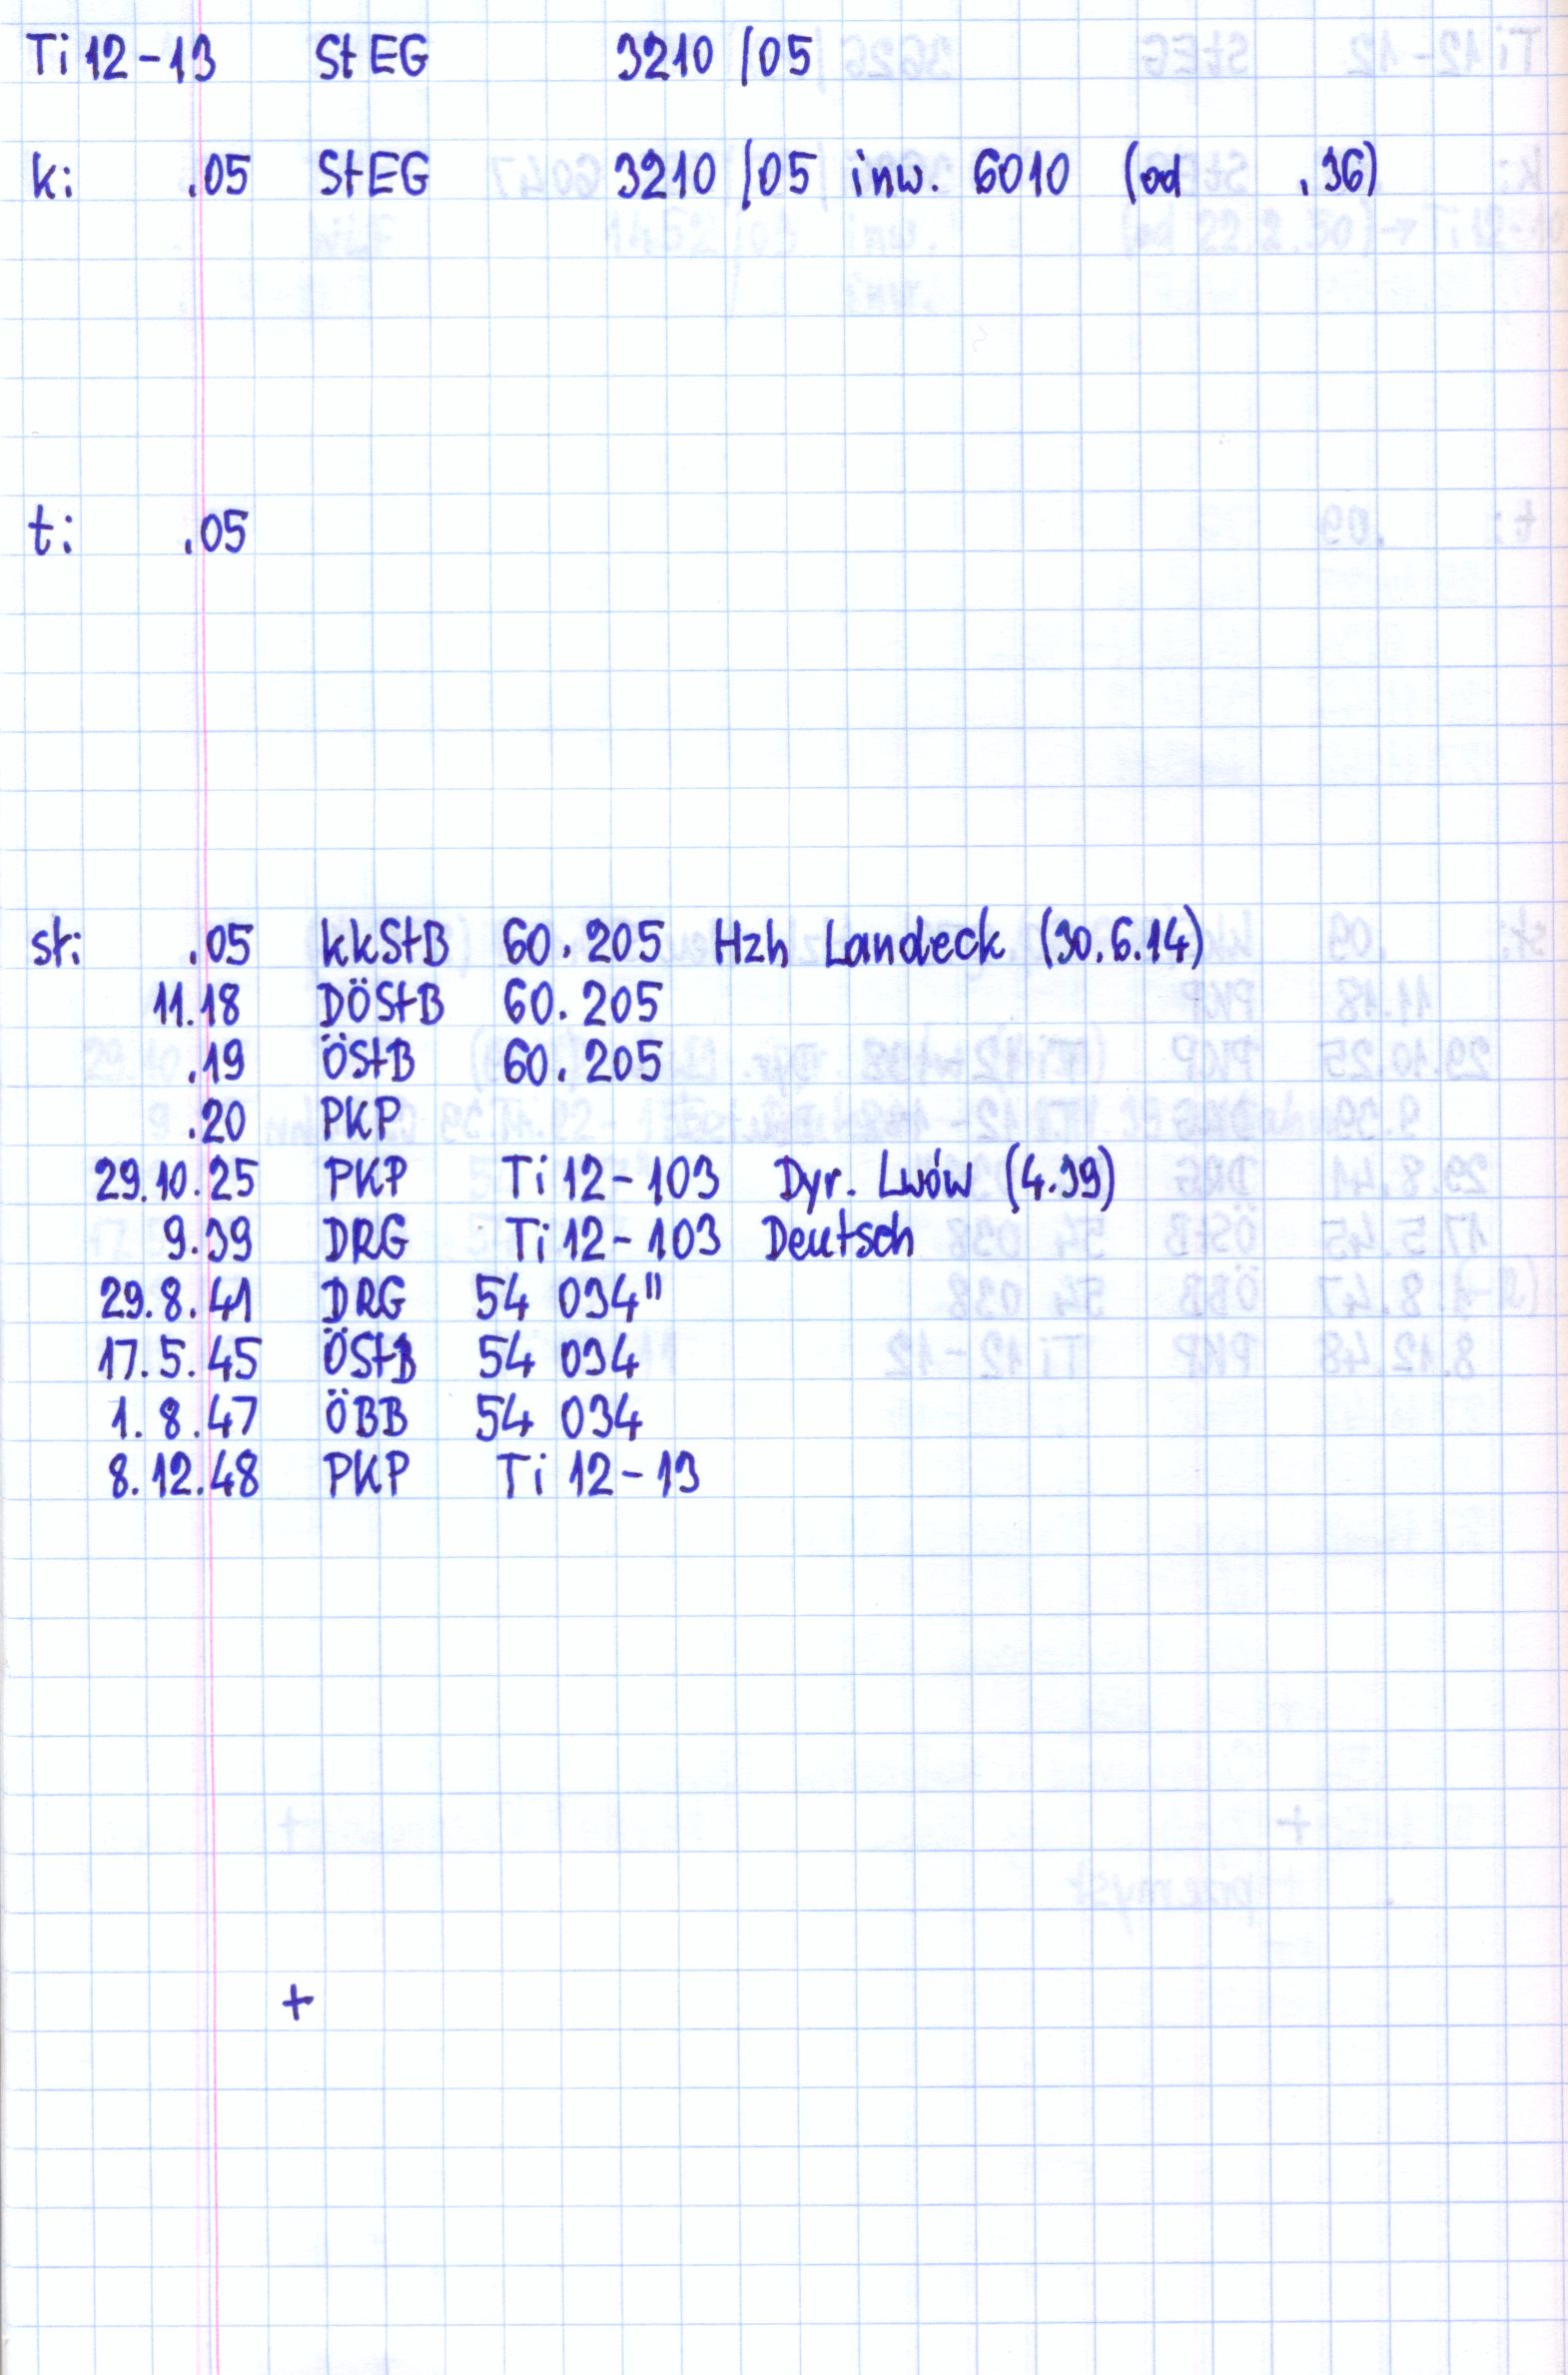 Ti 12-13 StEG 3210/05
k: .05 StEG 3210/05 inw. 6010 (od .36)
t: .05
st: .05 kkStB 60.205 Hzh Landeck (30.6.14)
11.18 DÖStB 60.205
.19 ÖStB 60.205
.20 PKP
29.10.25 PKP Ti 12-103 Dyr. Lwów (4.39)
9.39 DRG Ti 12-103 Deutsch
29.8.41 DRG 54 034"
17.5.45 ÖStB 54 034
1.8.47 ÖBB 54 034
8.12.48 PKP Ti 12-13
+